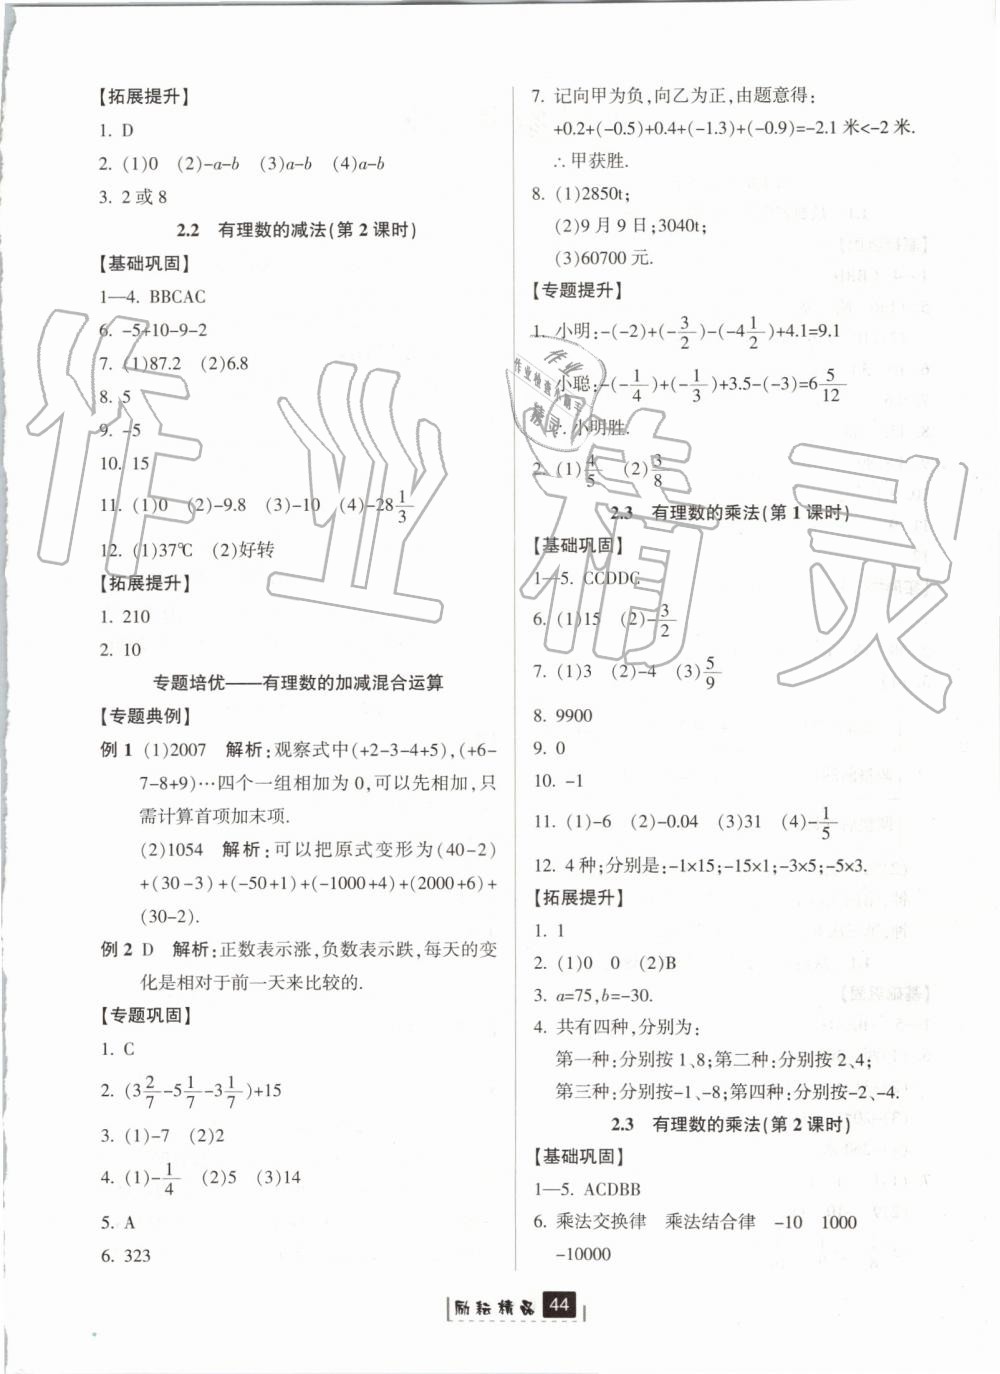 【拓展提升】
1. D
2. (1)0 (2)-a-b (3)a-b (4)a-b
3. 2 或 8
2.2 有理数的减法(第 2 课时)
【基础巩固】
1—4. BBCAC
6. -5+10-9-2
7. (1)87.2 (2)6.8
8. 5
9. -5
10. 15
11. (1)0 (2)-9.8 (3)-10 (4)-28 1/3
12. (1)37℃ (2)好转
【拓展提升】
1. 210
2. 10
专题培优——有理数的加减混合运算
【专题典例】
例 1 (1)2007 解析:观察式中(+2-3-4+5),(+6-
7-8+9)…四个一组相加为 0,可以先相加,只
需计算首项加末项.
(2)1054 解析:可以把原式变形为(40-2)
+(30-3)+(-50+1)+(-1000+4)+(2000+6)+
(30-2).
例 2 D 解析:正数表示涨,负数表示跌,每天的变
化是相对于前一天来比较的.
【专题巩固】
1. C
2. (3 2/7-5 1/7-3 1/7)+15
3. (1)-7 (2)2
4. (1)-1/4 (2)5 (3)14
5. A
6. 323
7. 记向甲为负,向乙为正,由题意得:
+0.2+(-0.5)+0.4+(-1.3)+(-0.9)=-2.1 米<-2 米.
∴甲获胜.
8. (1)2850t;
(2)9 月 9 日;3040t;
(3)60700 元.
【专题提升】
1. 小明:-(-2)+(-3/2)-(-4 1/2)+4.1=9.1
小聪:-(-1/4)+(-1/3)+3.5-(-3)=6 5/12
∴小明胜.
2. (1)4/5 (2)3/8
2.3 有理数的乘法(第 1 课时)
【基础巩固】
1—5. CCDDC
6. (1)15 (2)-3/2
7. (1)3 (2)-4 (3)5/9
8. 9900
9. 0
10. -1
11. (1)-6 (2)-0.04 (3)31 (4)-1/5
12. 4 种;分别是:-1×15;-15×1;-3×5;-5×3.
【拓展提升】
1. 1
2. (1)0 0 (2)B
3. a=75,b=-30.
4. 共有四种,分别为:
第一种:分别按 1、8;第二种:分别按 2、4;
第三种:分别按-1、-8;第四种:分别按-2、-4.
2.3 有理数的乘法(第 2 课时)
【基础巩固】
1—5. ACDBB
6. 乘法交换律 乘法结合律 -10 1000
-10000
励耘精品 44
作业精灵